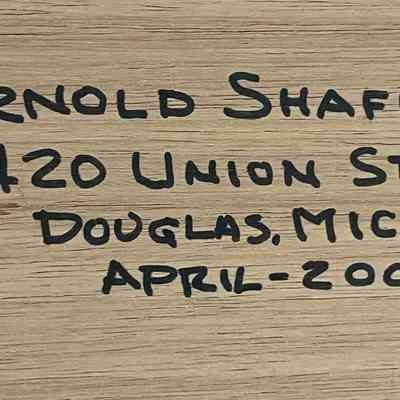 RNOLD SHAF
420 UNION ST
DOUGLAS, MIC
APRIL-200